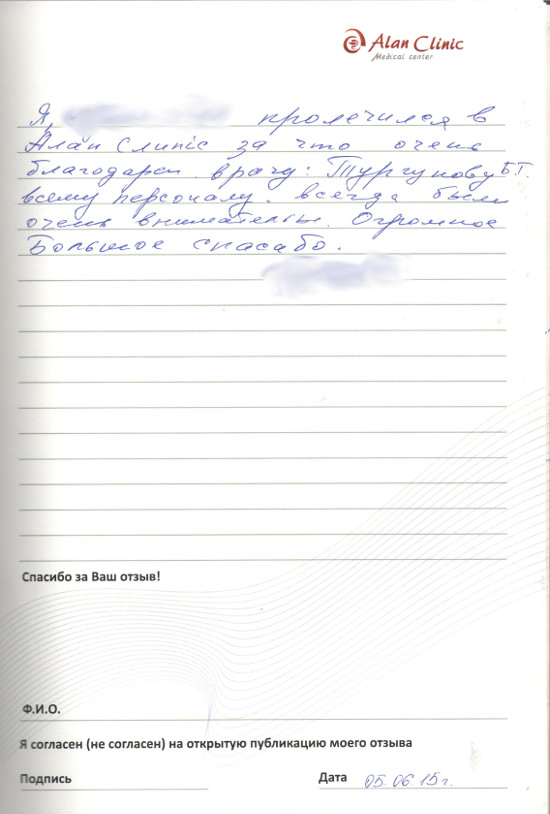 Alan Clinic
Medical center
Я, пролечился в
Алан Clinic за что очень
благодарен врачу: Тургунову Б.Т.
всему персоналу. всегда были
очень внимательны. Огромное
Большое спасабо.
Спасибо за Ваш отзыв!
Ф.И.О.
Я согласен (не согласен) на открытую публикацию моего отзыва
Подпись Дата 05.06 15г.